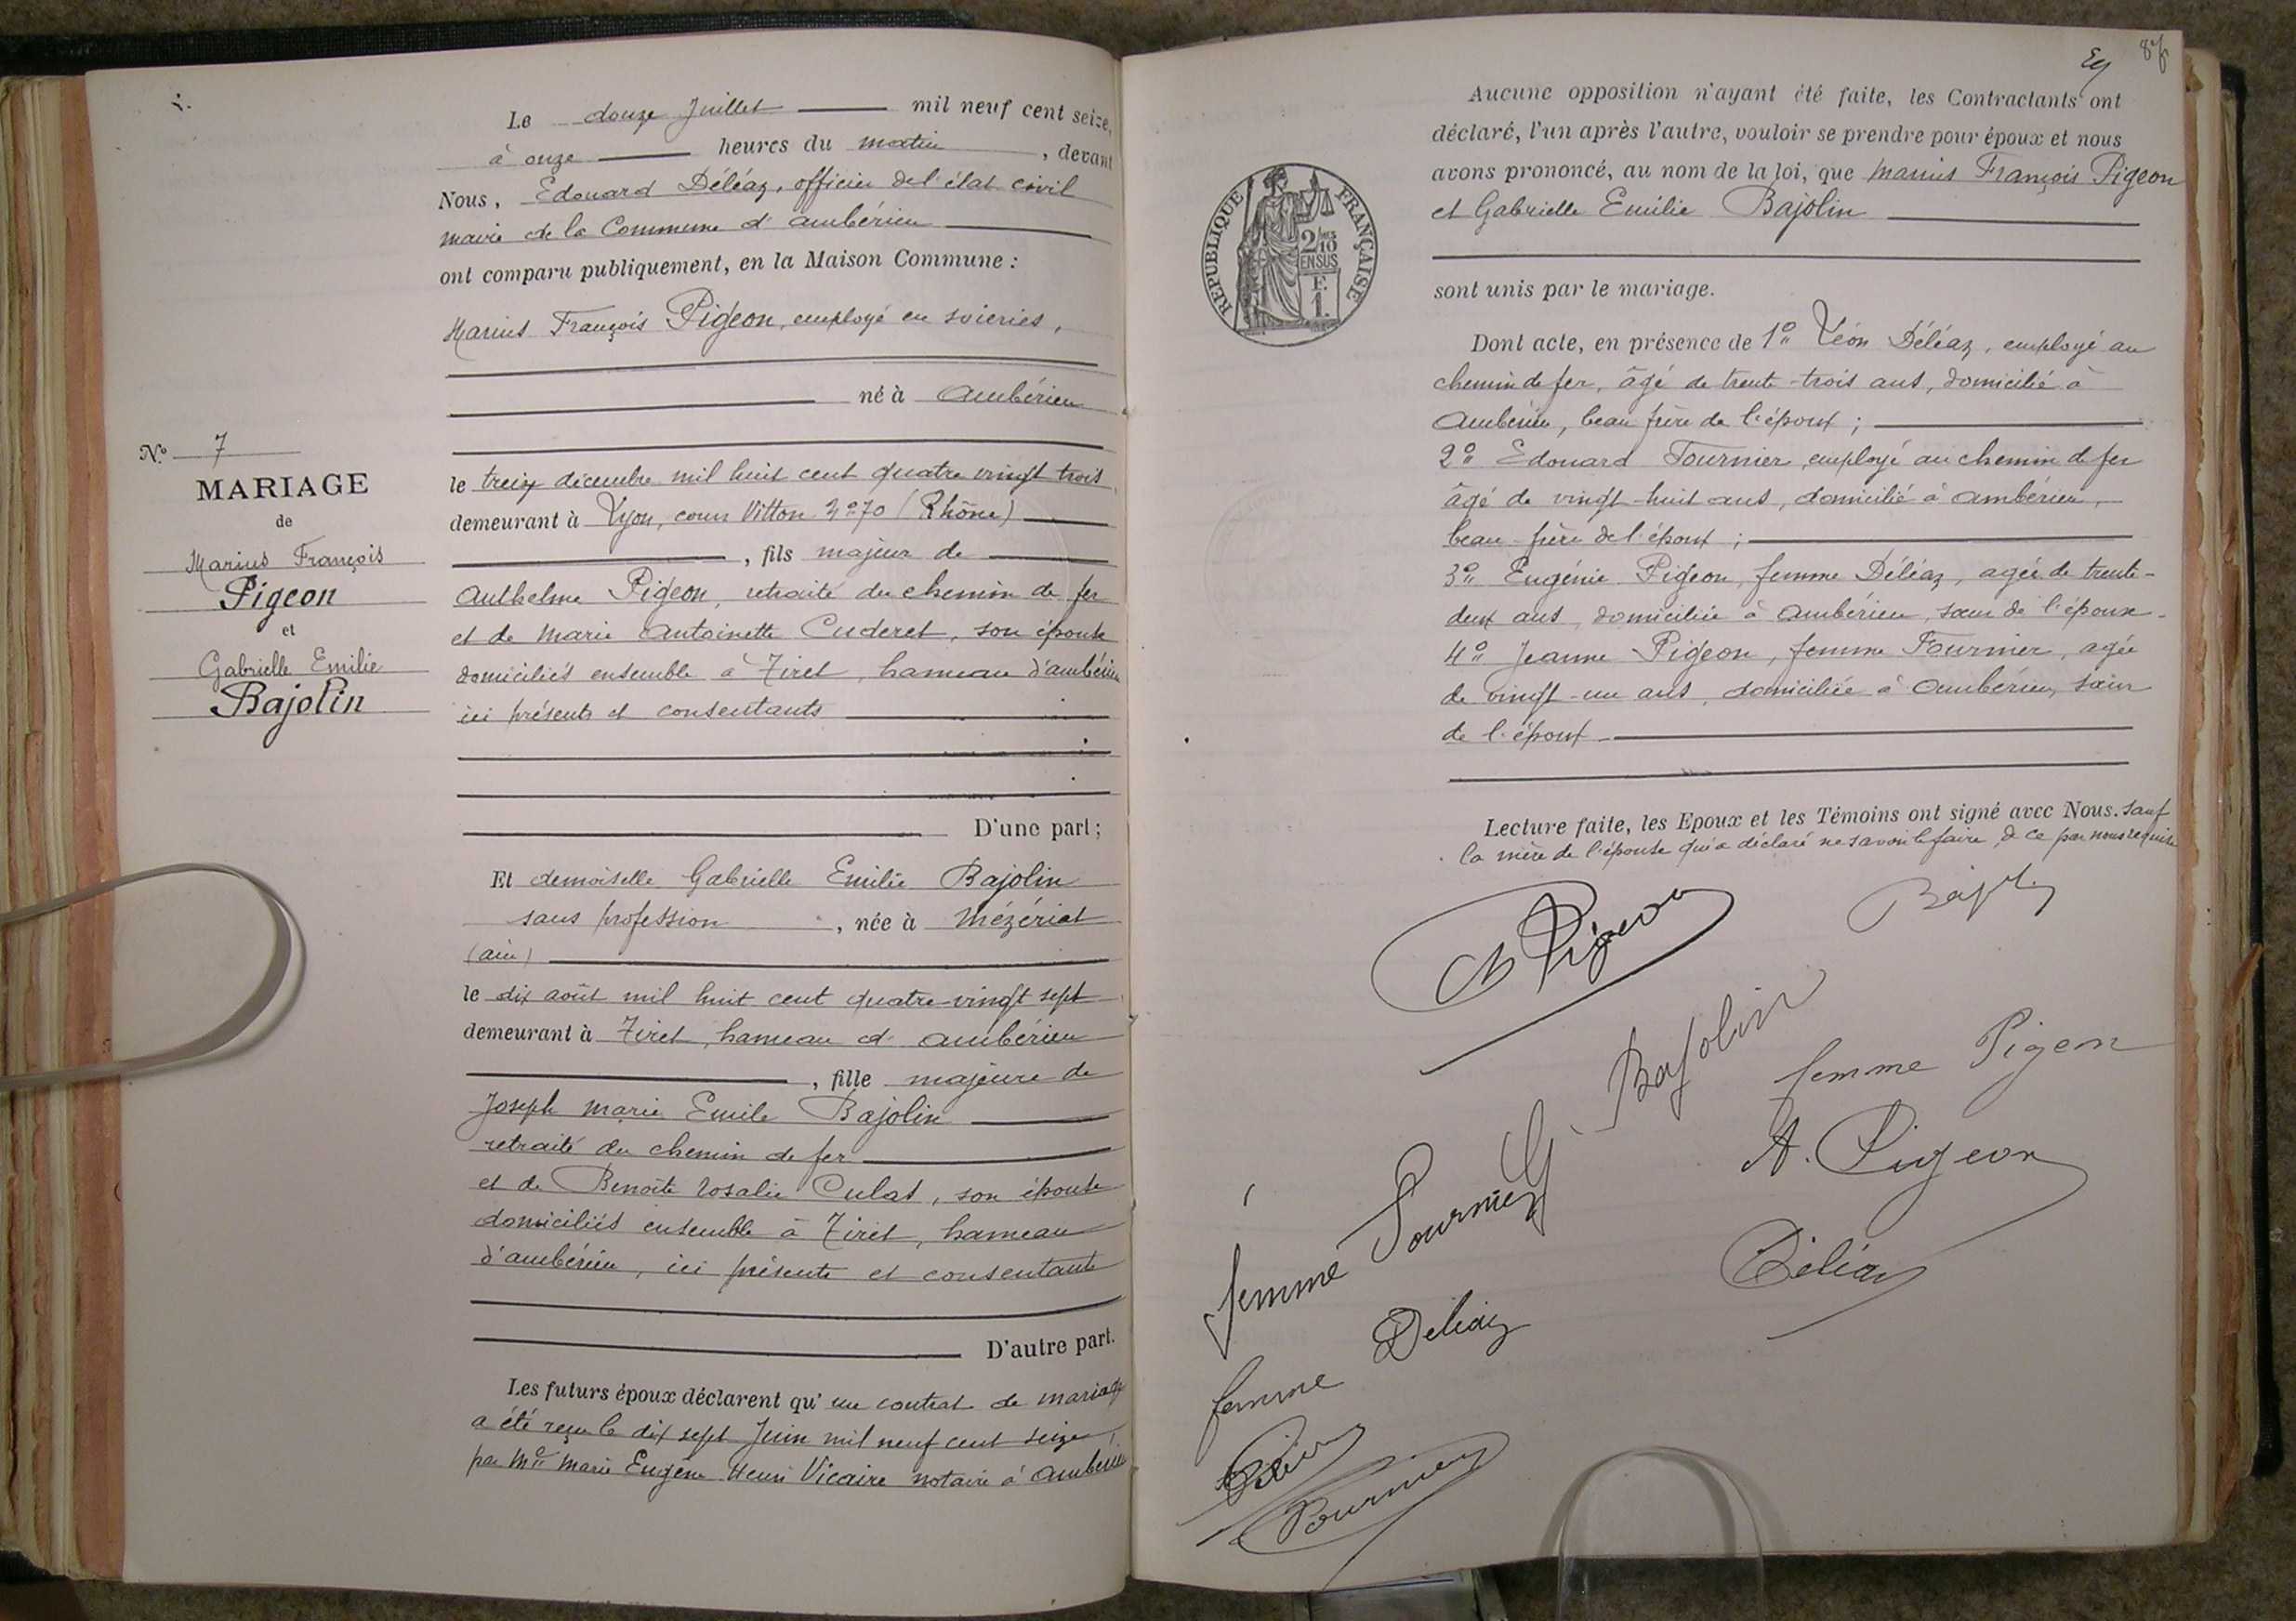 Le douze Juillet mil neuf cent seize,
à onze heures du matin, devant
Nous, Edouard Déléaz, officier de l'état civil
maire de la Commune d'Ambérieu
ont comparu publiquement, en la Maison Commune :
Marius François Pigeon, employé en soieries,
né à Ambérieu
le treize décembre mil huit cent quatre vingt trois,
demeurant à Lyon, cours Vitton 70 (Rhône)
, fils majeur de
Anthelme Pigeon, retraité du chemin de fer
et de Marie Antoinette Cuderet, son épouse
domiciliés ensemble à Tiret, hameau d'Ambérieu
ici présents et consentants
D'une part ;
N° 7
MARIAGE
de
Marius François
Pigeon
et
Gabrielle Emilie
Bajolin
Et demoiselle Gabrielle Emilie Bajolin
sans profession, née à Mézériat
(Ain)
le dix août mil huit cent quatre-vingt sept
demeurant à Tiret, hameau d'Ambérieu
, fille majeure de
Joseph Marie Emile Bajolin
retraité du chemin de fer
et de Benoîte Rosalie Culat, son épouse
domiciliés ensemble à Tiret, hameau
d'Ambérieu, ici présents et consentants
D'autre part.
Les futurs époux déclarent qu'un contrat de mariage
a été reçu le dix sept Juin mil neuf cent seize,
par Me Marie Eugène Henri Vicaire notaire à Ambérieu
87
Aucune opposition n'ayant été faite, les Contractants ont
déclaré, l'un après l'autre, vouloir se prendre pour époux et nous
avons prononcé, au nom de la loi, que Marius François Pigeon
et Gabrielle Emilie Bajolin
sont unis par le mariage.
REPUBLIQUE FRANÇAISE
2/10
EN SUS
F.
1.
Dont acte, en présence de 1° Léon Déléaz, employé au
chemin de fer, âgé de trente-trois ans, domicilié à
Ambérieu, beau frère de l'époux ;
2° Edouard Fournier, employé au chemin de fer
âgé de vingt-huit ans, domicilié à Ambérieu,
beau-frère de l'époux ;
3° Eugénie Pigeon, femme Déléaz, agée de trente-
deux ans, domiciliée à Ambérieu, sœur de l'époux -
4° Jeanne Pigeon, femme Fournier, agée
de vingt-un ans, domiciliée à Ambérieu, sœur
de l'époux
Lecture faite, les Epoux et les Témoins ont signé avec Nous. sauf
la mère de l'épouse qui a déclaré ne savoir le faire, de ce par nous requise
Pigeon
Bajolin
G Bajolin
femme Pigeon
A. Pigeon
femme Fournier
Déléaz
femme Déléaz
Fournier